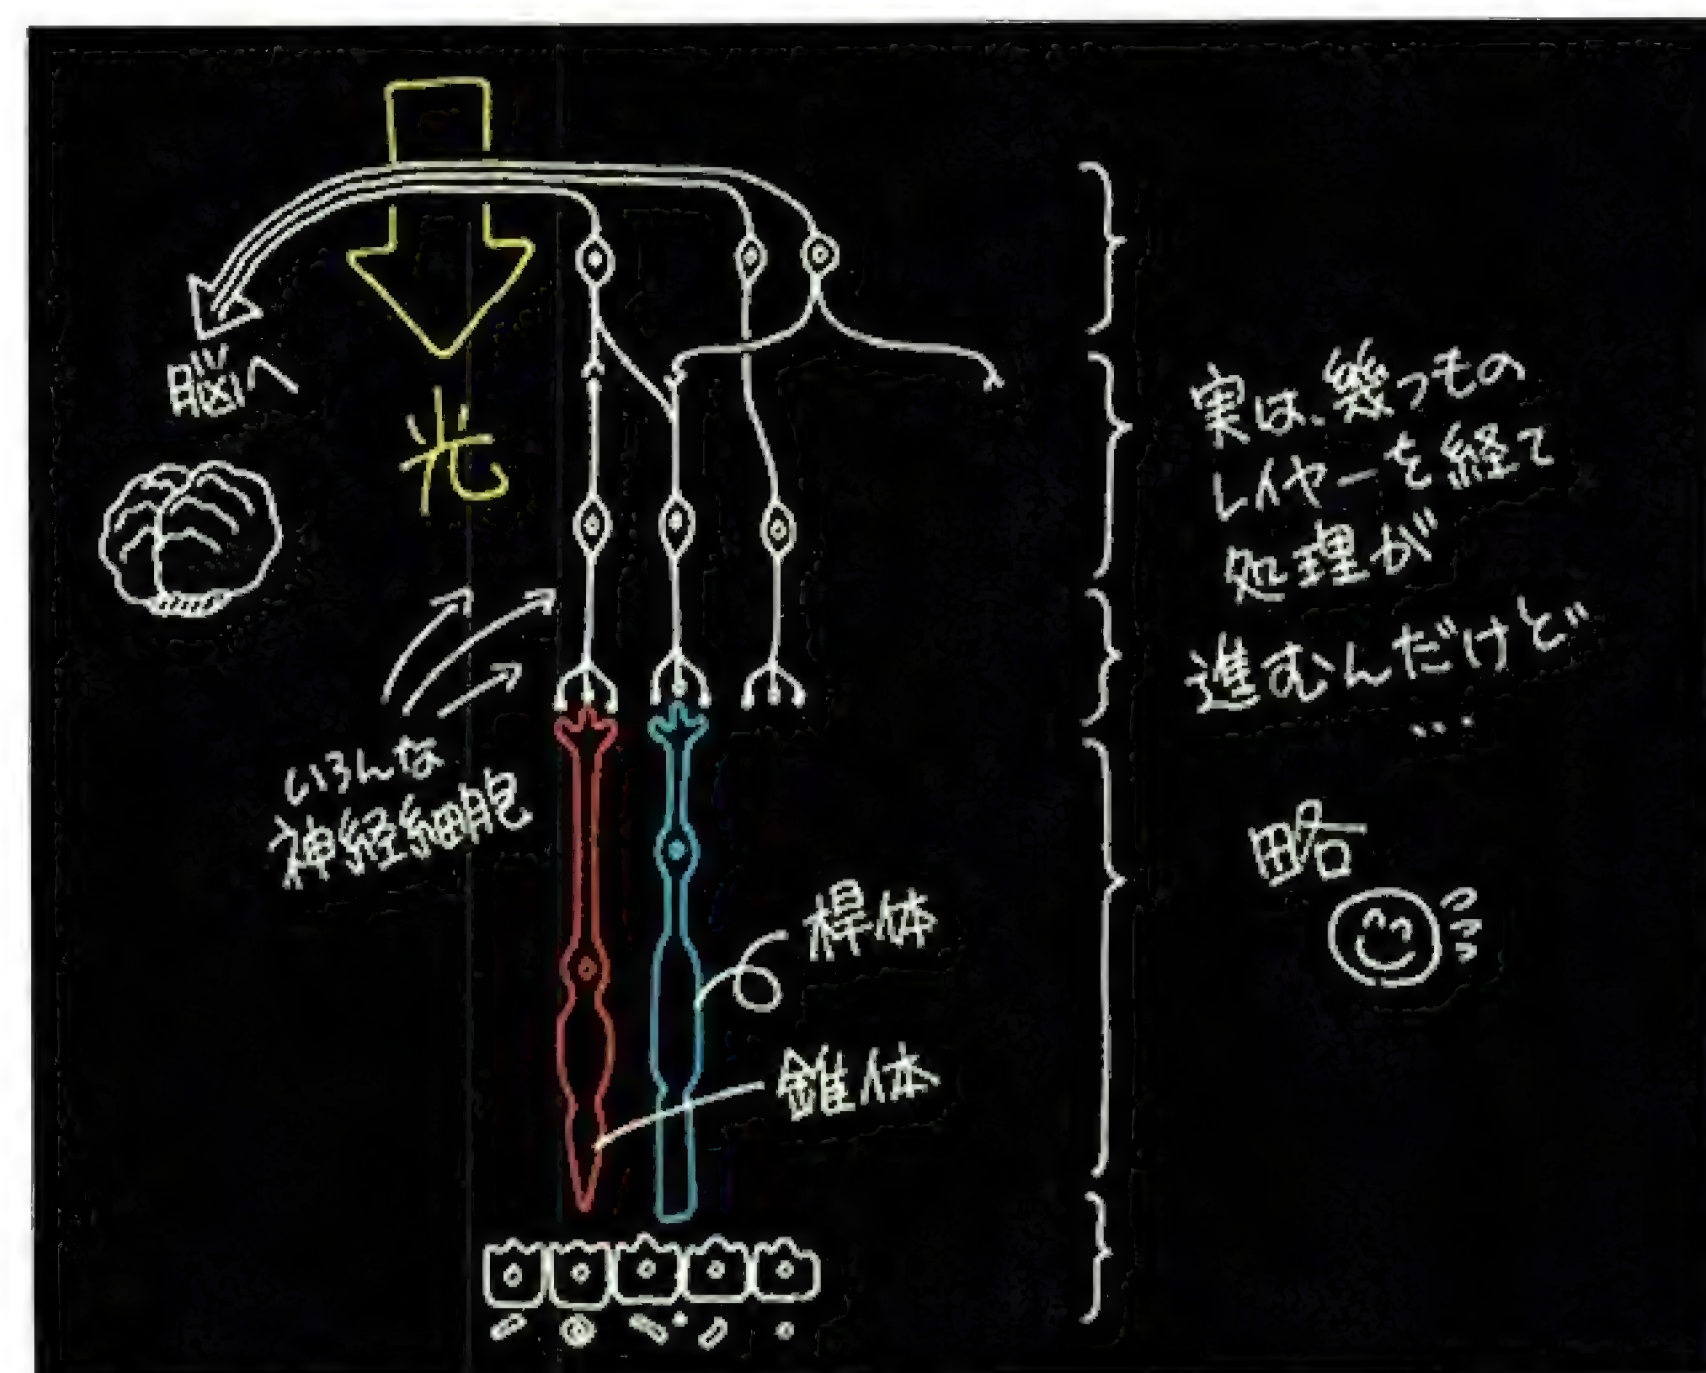 脳へ
光
いろんな
神経細胞
桿体
錐体
実は、幾つもの
レイヤーを経て
処理が
進むんだけど
…
略